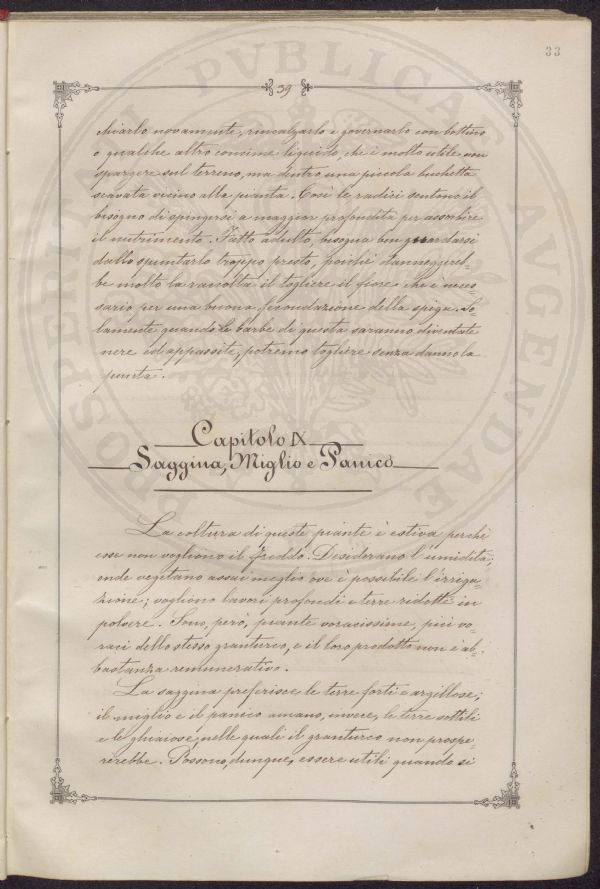 33
39
chiarlo novamente, rincalzarlo e governarlo con bottino
o qualche altro concime liquido, che è molto utile non
spargere sul terreno, ma dentro una piccola buchetta
scavata vicino alla pianta. Così le radici sentono il
bisogno di spingersi a maggior profondità per assorbire
il nutrimento. Fatto adulto, bisogna ben guardarsi
dallo spuntarlo troppo presto, poichè danneggereb=
be molto la raccolta il togliere il fiore che è neces=
sario per una buona fecondazione della spiga. So=
lamente quando le barbe di questa saranno diventate
nere ed appassite, potremo togliere senza danno la
punta.
Capitolo IX
Saggina, Miglio e Panico
La coltura di queste piante è estiva perchè
esse non vogliono il freddo. Desiderano l'umidità,
onde vegetano assai meglio ove è possibile l'irriga=
zione; vogliono lavori profondi e terre ridotte in
polvere. Sono, però, piante voracissime, più vo=
raci dello stesso granturco, e il loro prodotto non è ab=
bastanza remunerativo.
La saggina preferisce le terre forti e argillose;
il miglio e il panico amano, invece, le terre sottili
e le ghiaiose, nelle quali il granturco non prospe=
rerebbe. Possono, dunque, essere utili quando si
PVBLICAE
AVGENDAE
PROSPERITATI